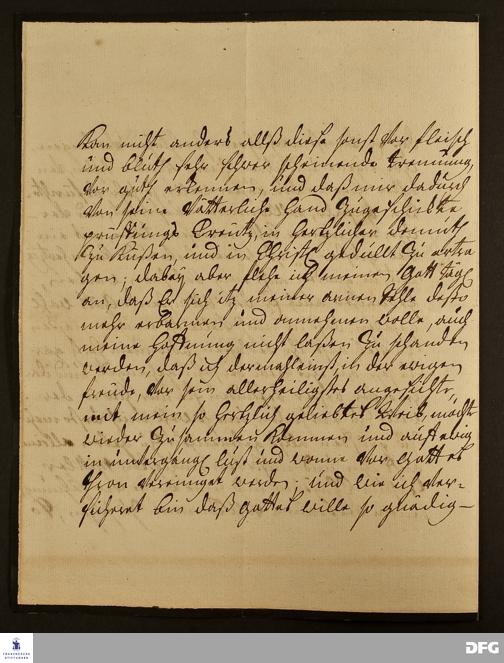 Kan nicht anders allß diese sonst vor fleisch
und bluth sehr schwer scheinende trennung,
vor guth erkennen, und daß mir dadurch
von seine Vätterliche Hand zugeschickte
prüffungs Creutz, in Hertzlicher demuth
zu Küßen, und in Christl gedult zu ertra
gen; dabey aber flehe ich meinen Gott tägl
an, daß Er sich itz meiner armen Sehle desto
mehr erbarmen und annehmen wolle, auch
meine Hoffnung nicht laßen zu schanden
werden, daß ich dermahleinst, in der ewigen
freude, vor sein allerheiligstes angesichte,
mit mein so Hertzlich geliebtes Weib, möchte
wieder zusammen Kommen und auf ewig
in unvergängl lust und wonne vor Gottes
thron vereiniget werden; und wie ich ver-
sicheret bin daß Gottes wille so gnädig-
FRANCKESCHE
STIFTUNGEN
DFG